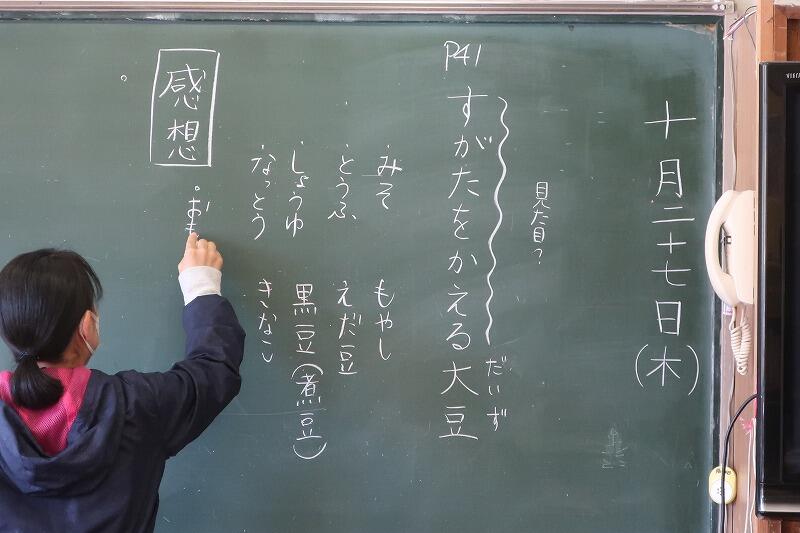 十月二十七日(木)
見た目?
P41
すがたをかえる大豆
だいず
・みそ
・とうふ
・しょうゆ
・なっとう
もやし
えだ豆
黒豆(煮豆)
きなこ
感想